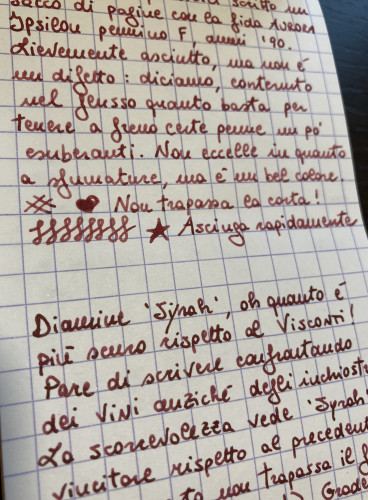 sacco di pagine con la fida Aurora
Ypsilon pennino F, anni '90.
Lievemente asciutto, ma non è
un difetto: diciamo, contenuto
nel flusso quanto basta per
tenere a freno certe penne un pò
esuberanti. Non eccelle in quanto
a sfumature, ma è un bel colore.
Non trapassa la carta!
Asciuga rapidamente
Diamine 'Syrah', oh quanto è
più scuro rispetto al Visconti!
Pare di scrivere confrontando
dei vini anziché degli inchiostri
La scorrevolezza vede 'Syrah'
vincitore rispetto al precedente
non trapassa il